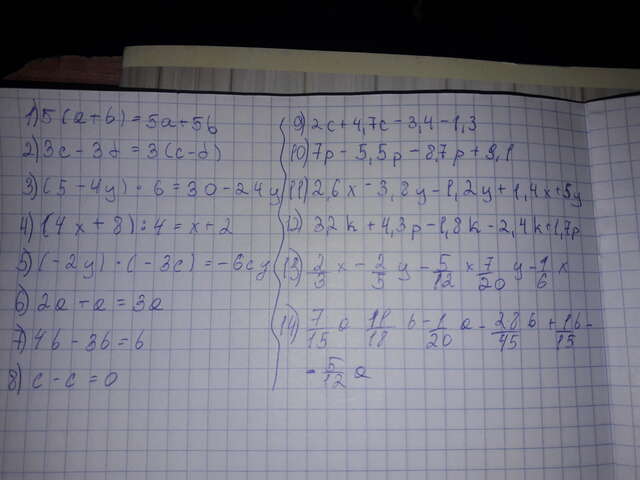 1) 5(a+b)=5a+5b
2) 3c-3d=3(c-d)
3) (5-4y)·6=30-24y
4) (4x+8):4=x+2
5) (-2y)·(-3c)=-6cy
6) 2a+a=3a
7) 4b-3b=b
8) c-c=0
9) 2c+4,7c-3,4-1,3
10) 7p-5,5p-8,7p+9,1
11) 2,6x-3,8y-1,2y+1,4x+5y
12) 32k+4,3p-1,8k-2,4k+1,7p
13) 2/3 x - 2/5 y - 5/12 x 7/20 y - 1/6 x
14) 7/15 a 11/18 b - 1/20 a - 28/45 b + 1b/15 -
- 5/12 a